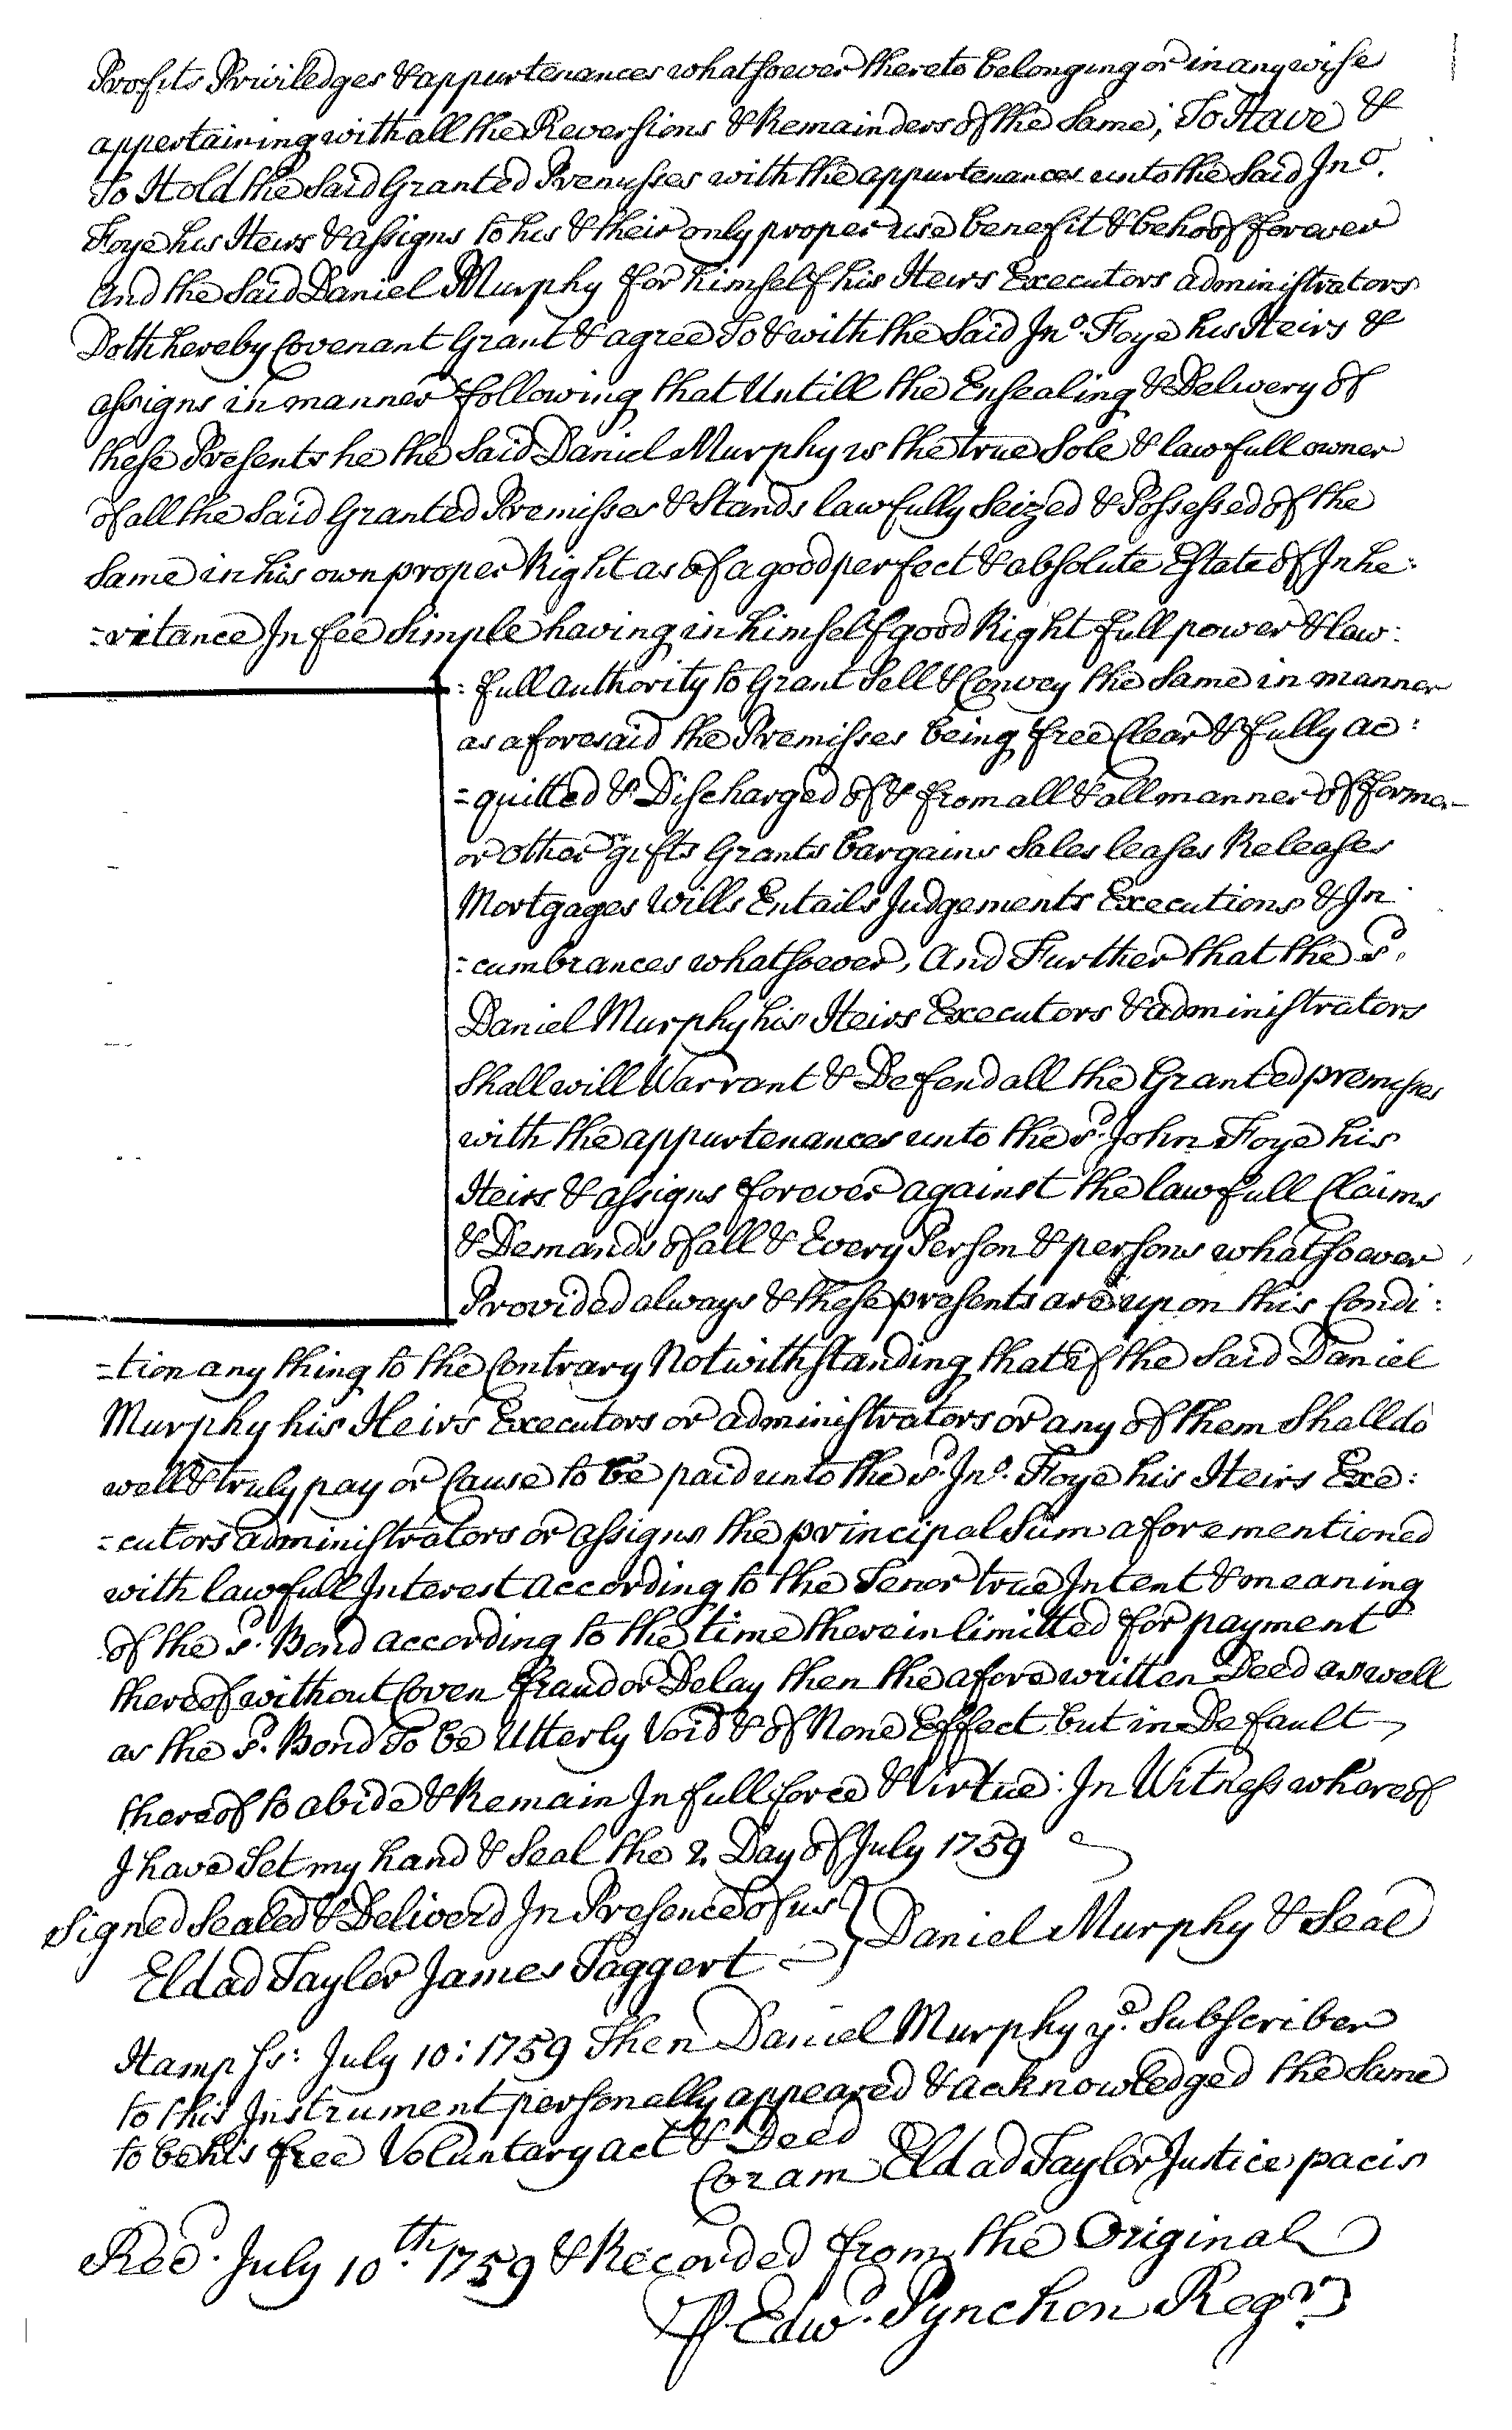 Profits Priviledges & appurtenances whatsoever thereto belonging or in any wise
appertaining with all the Reversions & Remainders of the Same; To Have &
To Hold the Said Granted Premisses with the appurtenances unto the Said Jno.
Foye his Heirs & assigns to his & their only proper use benefit & behoof forever
And the Said Daniel Murphy for himself his Heirs Executors administrators
Doth hereby Covenant Grant & agree To & with the Said Jno. Foye his Heirs &
assigns in manner following that Untill the Ensealing & Delivery of
these Presents he the Said Daniel Murphy is the true Sole & lawfull owner
of all the Said Granted Premisses & Stands lawfully Seized & Possessed of the
Same in his own proper Right as of a good perfect & absolute Estate of Inhe:
=ritance In fee Simple having in himself good Right full power & law:
:full authority to Grant Sell & Convey the Same in manner
as aforesaid the Premisses being free Clear & fully ac:
=quitted & Discharged of & from all & all manner of former
or other gifts Grants bargains Sales leases Releases
Mortgages Wills Entails Judgements Executions & In
=cumbrances whatsoever, And Further that the sd.
Daniel Murphy his Heirs Executors & administrators
Shall will Warrant & Defend all the Granted premisses
with the appurtenances unto the sd. John Foye his
Heirs & assigns forever against the lawfull Claims
& Demands of all & Every Person & persons whatsoever
Provided always & these presents are upon this Condi:
=tion any thing to the Contrary Notwithstanding that if the Said Daniel
Murphy his Heirs Executors or administrators or any of them Shall do
well & truly pay or Cause to be paid unto the sd. Jno. Foye his Heirs Exe:
=cutors administrators or assigns the principal Sum aforementioned
with lawfull Interest according to the Tenor true Intent & meaning
of the sd. Bond according to the time therein limitted for payment
thereof without Coven fraud or Delay then the afore written Deed as well
as the sd. Bond To be Utterly Void & of None Effect but in Default
thereof to abide & Remain In full force & Virtue: In Witness whereof
I have Set my hand & Seal the 2 Day of July 1759
Signed Sealed & Deliverd In Presence of us } Daniel Murphy & Seal
Eldad Taylor James Taggert
Hamp Ss: July 10: 1759 Then Daniel Murphy ye. Subscriber
to this Instrument personally appeared & acknowledged the Same
to be his free Voluntary act & Deed
Coram Eldad Taylor Justice pacis
Recd. July 10th. 1759 & Recorded from the Original
P Edwd. Pynchon Regr.